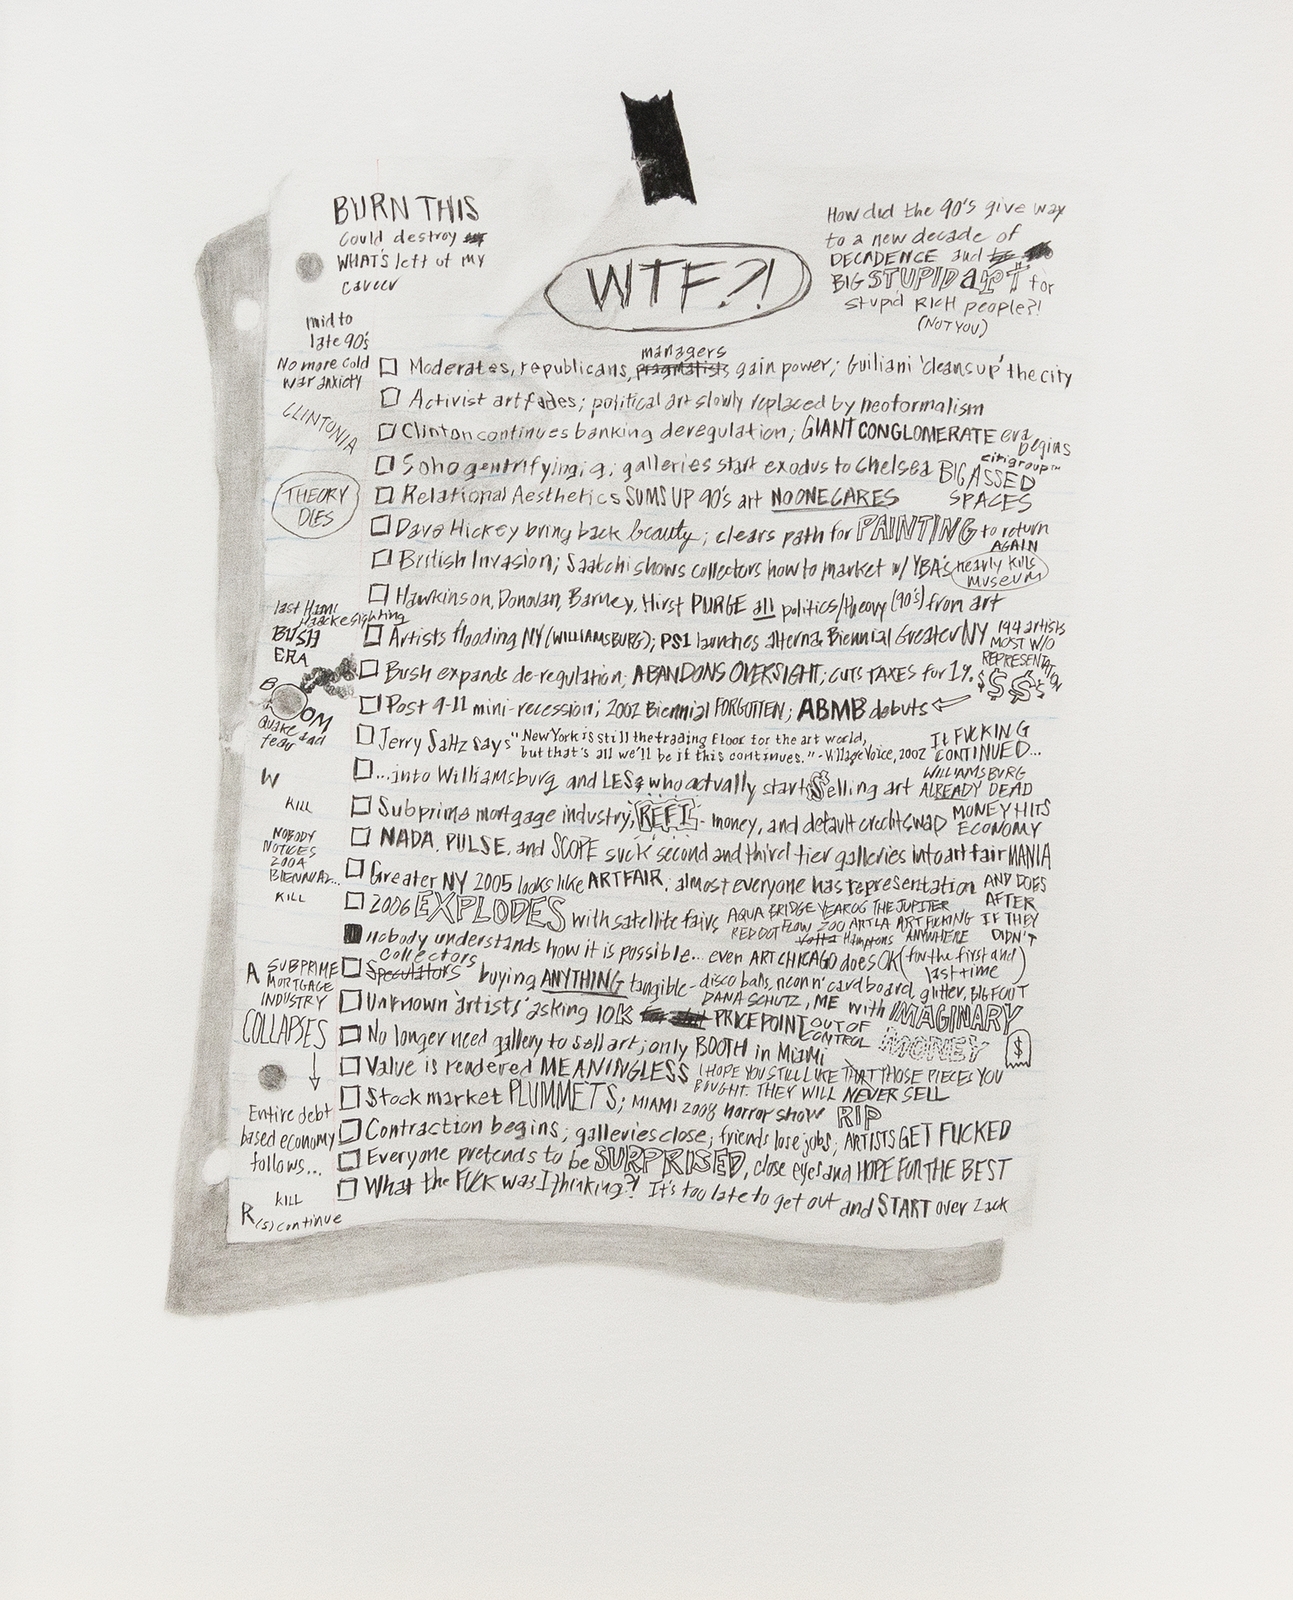 BURN THIS
could destroy
WHAT'S left of my
career
WTF?!
How did the 90's give way
to a new decade of
DECADENCE and
BIG STUPID art for
stupid RICH people?!
(NOT YOU)
mid to
late 90's
No more cold
war anxiety
CLINTONIA
THEORY
DIES
managers
Moderates, republicans, pragmatists gain power; Guiliani 'cleans up' the city
Activist art fades; political art slowly replaced by neoformalism
Clinton continues banking deregulation; GIANT CONGLOMERATE era begins
citigroup™
Soho gentrifying; galleries start exodus to Chelsea BIG ASSED
SPACES
Relational Aesthetics SUMS UP 90's art NO ONE CARES
Dave Hickey bring back beauty; clears path for PAINTING to return
AGAIN
British Invasion; Saatchi shows collectors how to market w/ YBA's nearly kills
museum
Hawkinson, Donovan, Barney, Hirst PURGE all politics/theory (90's) from art
last Hans
Haacke sighting
BUSH
ERA
Artists flooding NY (WILLIAMSBURG); PS1 launches alterna Biennial Greater NY 144 artists
MOST W/O
REPRESENTATION
Bush expands de-regulation; ABANDONS OVERSIGHT; CUTS TAXES for 1%. $$$$
BOOM
quake and
fear
Post 9-11 mini-recession; 2002 Biennial FORGOTTEN; ABMB debuts
Jerry Saltz says "New York is still the trading floor for the art world,
but that's all we'll be if this continues." - Village Voice, 2002
It FUCKING
CONTINUED...
W
...into Williamsburg and LES & who actually start $elling art
WILLIAMSBURG
ALREADY DEAD
KILL
Subprime mortgage industry, REFI - money, and default credit swap
MONEY HITS
ECONOMY
NOBODY
NOTICES
2004
BIENNIAL...
NADA, PULSE, and SCOPE suck second and third tier galleries into art fair MANIA
Greater NY 2005 looks like ART FAIR, almost everyone has representation AND DOES
AFTER
IF THEY
DIDN'T
KILL
2006 EXPLODES with satellite fairs AQUA BRIDGE YEAR06 THE JUPITER
RED DOT FLOW ZOO ART LA ART FUCKING
Volta Hamptons ANYWHERE
nobody understands how it is possible... even ART CHICAGO does OK (for the first and
last time)
collectors
Speculators buying ANYTHING tangible - disco balls, neon n' cardboard, glitter, BIGFOOT
DANA SCHUTZ, ME with IMAGINARY
MONEY
$
A SUBPRIME
MORTGAGE
INDUSTRY
COLLAPSES
Unknown 'artists' asking 10K PRICE POINT OUT OF
CONTROL
No longer need gallery to sell art; only BOOTH in Miami
Value is rendered MEANINGLESS I HOPE YOU STILL LIKE THAT THOSE PIECES YOU
BOUGHT. THEY WILL NEVER SELL
Stock market PLUMMETS; MIAMI 2008 horror show RIP
Entire debt
based economy
follows...
Contraction begins; galleries close; friends lose jobs; ARTISTS GET FUCKED
Everyone pretends to be SURPRISED, close eyes and HOPE FOR THE BEST
What the FUCK was I thinking?! It's too late to get out and START over Zack
KILL
R(s) continue